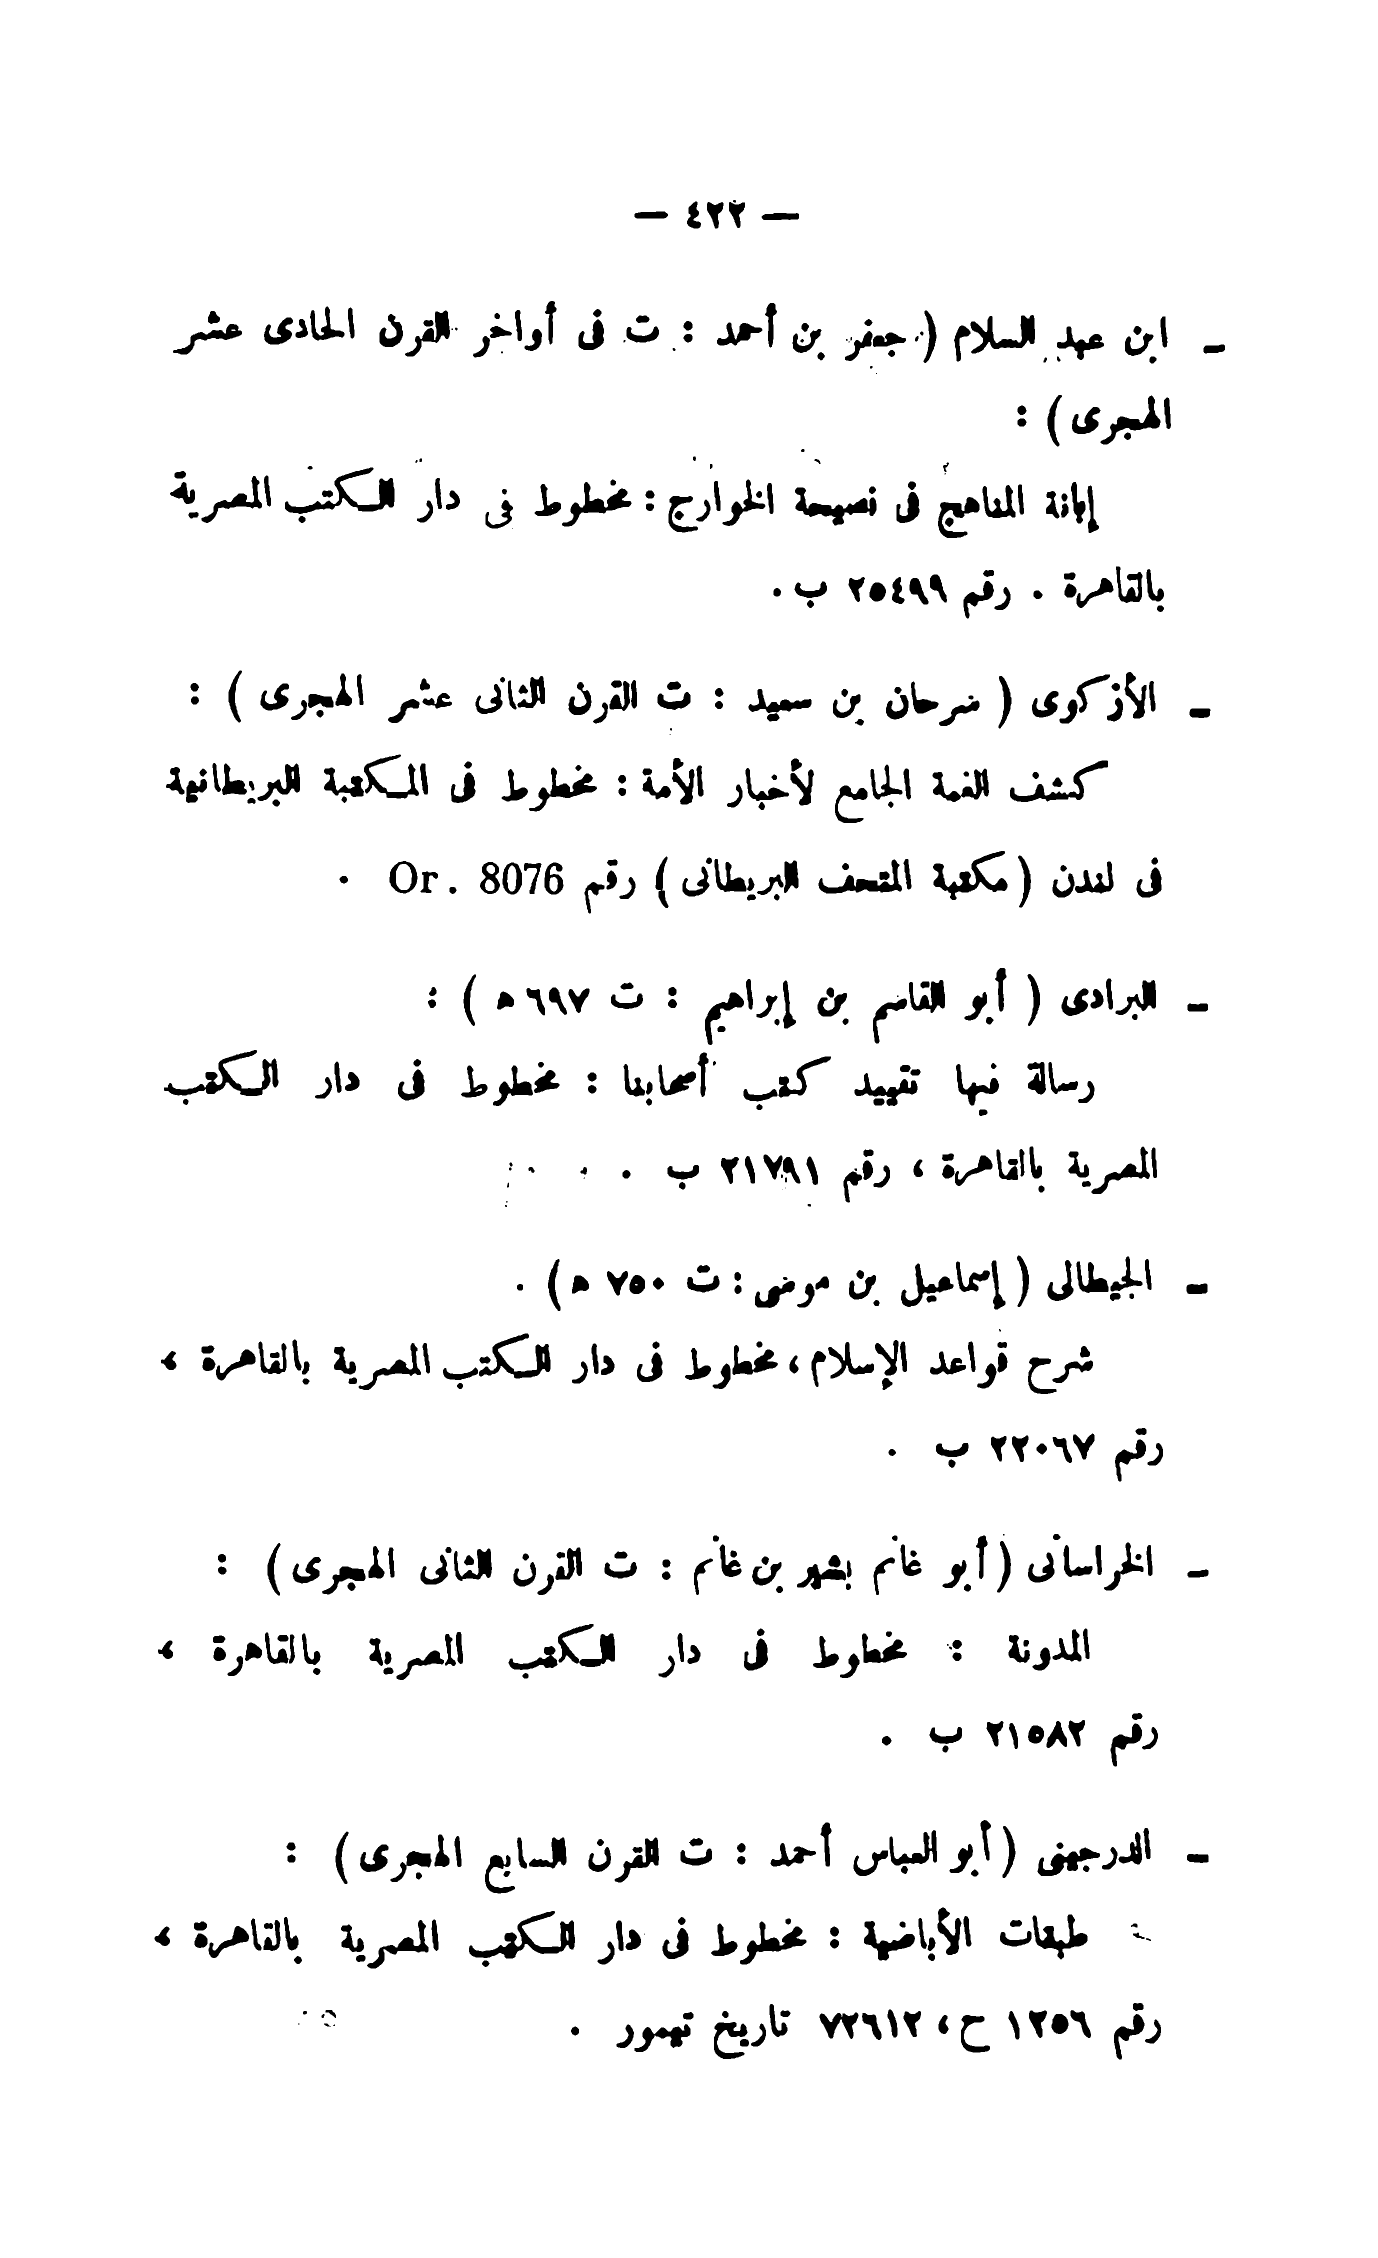 — ٤٢٢ —
ـ ابن عبد السلام ( جعفر بن أحمد : ت فى أواخر القرن الحادى عشر
الهجرى ) :
إبانة المناهج فى نصيحة الخوارج : مخطوط فى دار الكتب المصرية
بالقاهرة . رقم ٢٥٤٩٩ ب .
ـ الأزكوى ( سرحان بن سعيد : ت القرن الثانى عشر الهجرى ) :
كشف الغمة الجامع لأخبار الأمة : مخطوط فى المكتبة البريطانية
فى لندن ( مكتبة المتحف البريطانى ) رقم Or. 8076 .
ـ البرادى ( أبو القاسم بن إبراهيم : ت ٦٩٧ ه ) :
رسالة فيها تقييد كتب أصحابنا : مخطوط فى دار الكتب
المصرية بالقاهرة ، رقم ٢١٧٩١ ب .
ـ الجيطالى ( إسماعيل بن موسى : ت ٧٥٠ ه ) .
شرح قواعد الإسلام ، مخطوط فى دار الكتب المصرية بالقاهرة ،
رقم ٢٢٠٦٧ ب .
ـ الخراسانى ( أبو غانم بشير بن غانم : ت القرن الثانى الهجرى ) :
المدونة : مخطوط فى دار الكتب المصرية بالقاهرة ،
رقم ٢١٥٨٢ ب .
ـ الدرجينى ( أبو العباس أحمد : ت القرن السابع الهجرى ) :
طبقات الأباضية : مخطوط فى دار الكتب المصرية بالقاهرة ،
رقم ١٢٥٦ ح ، ٧٢٦١٢ تاريخ تيمور .